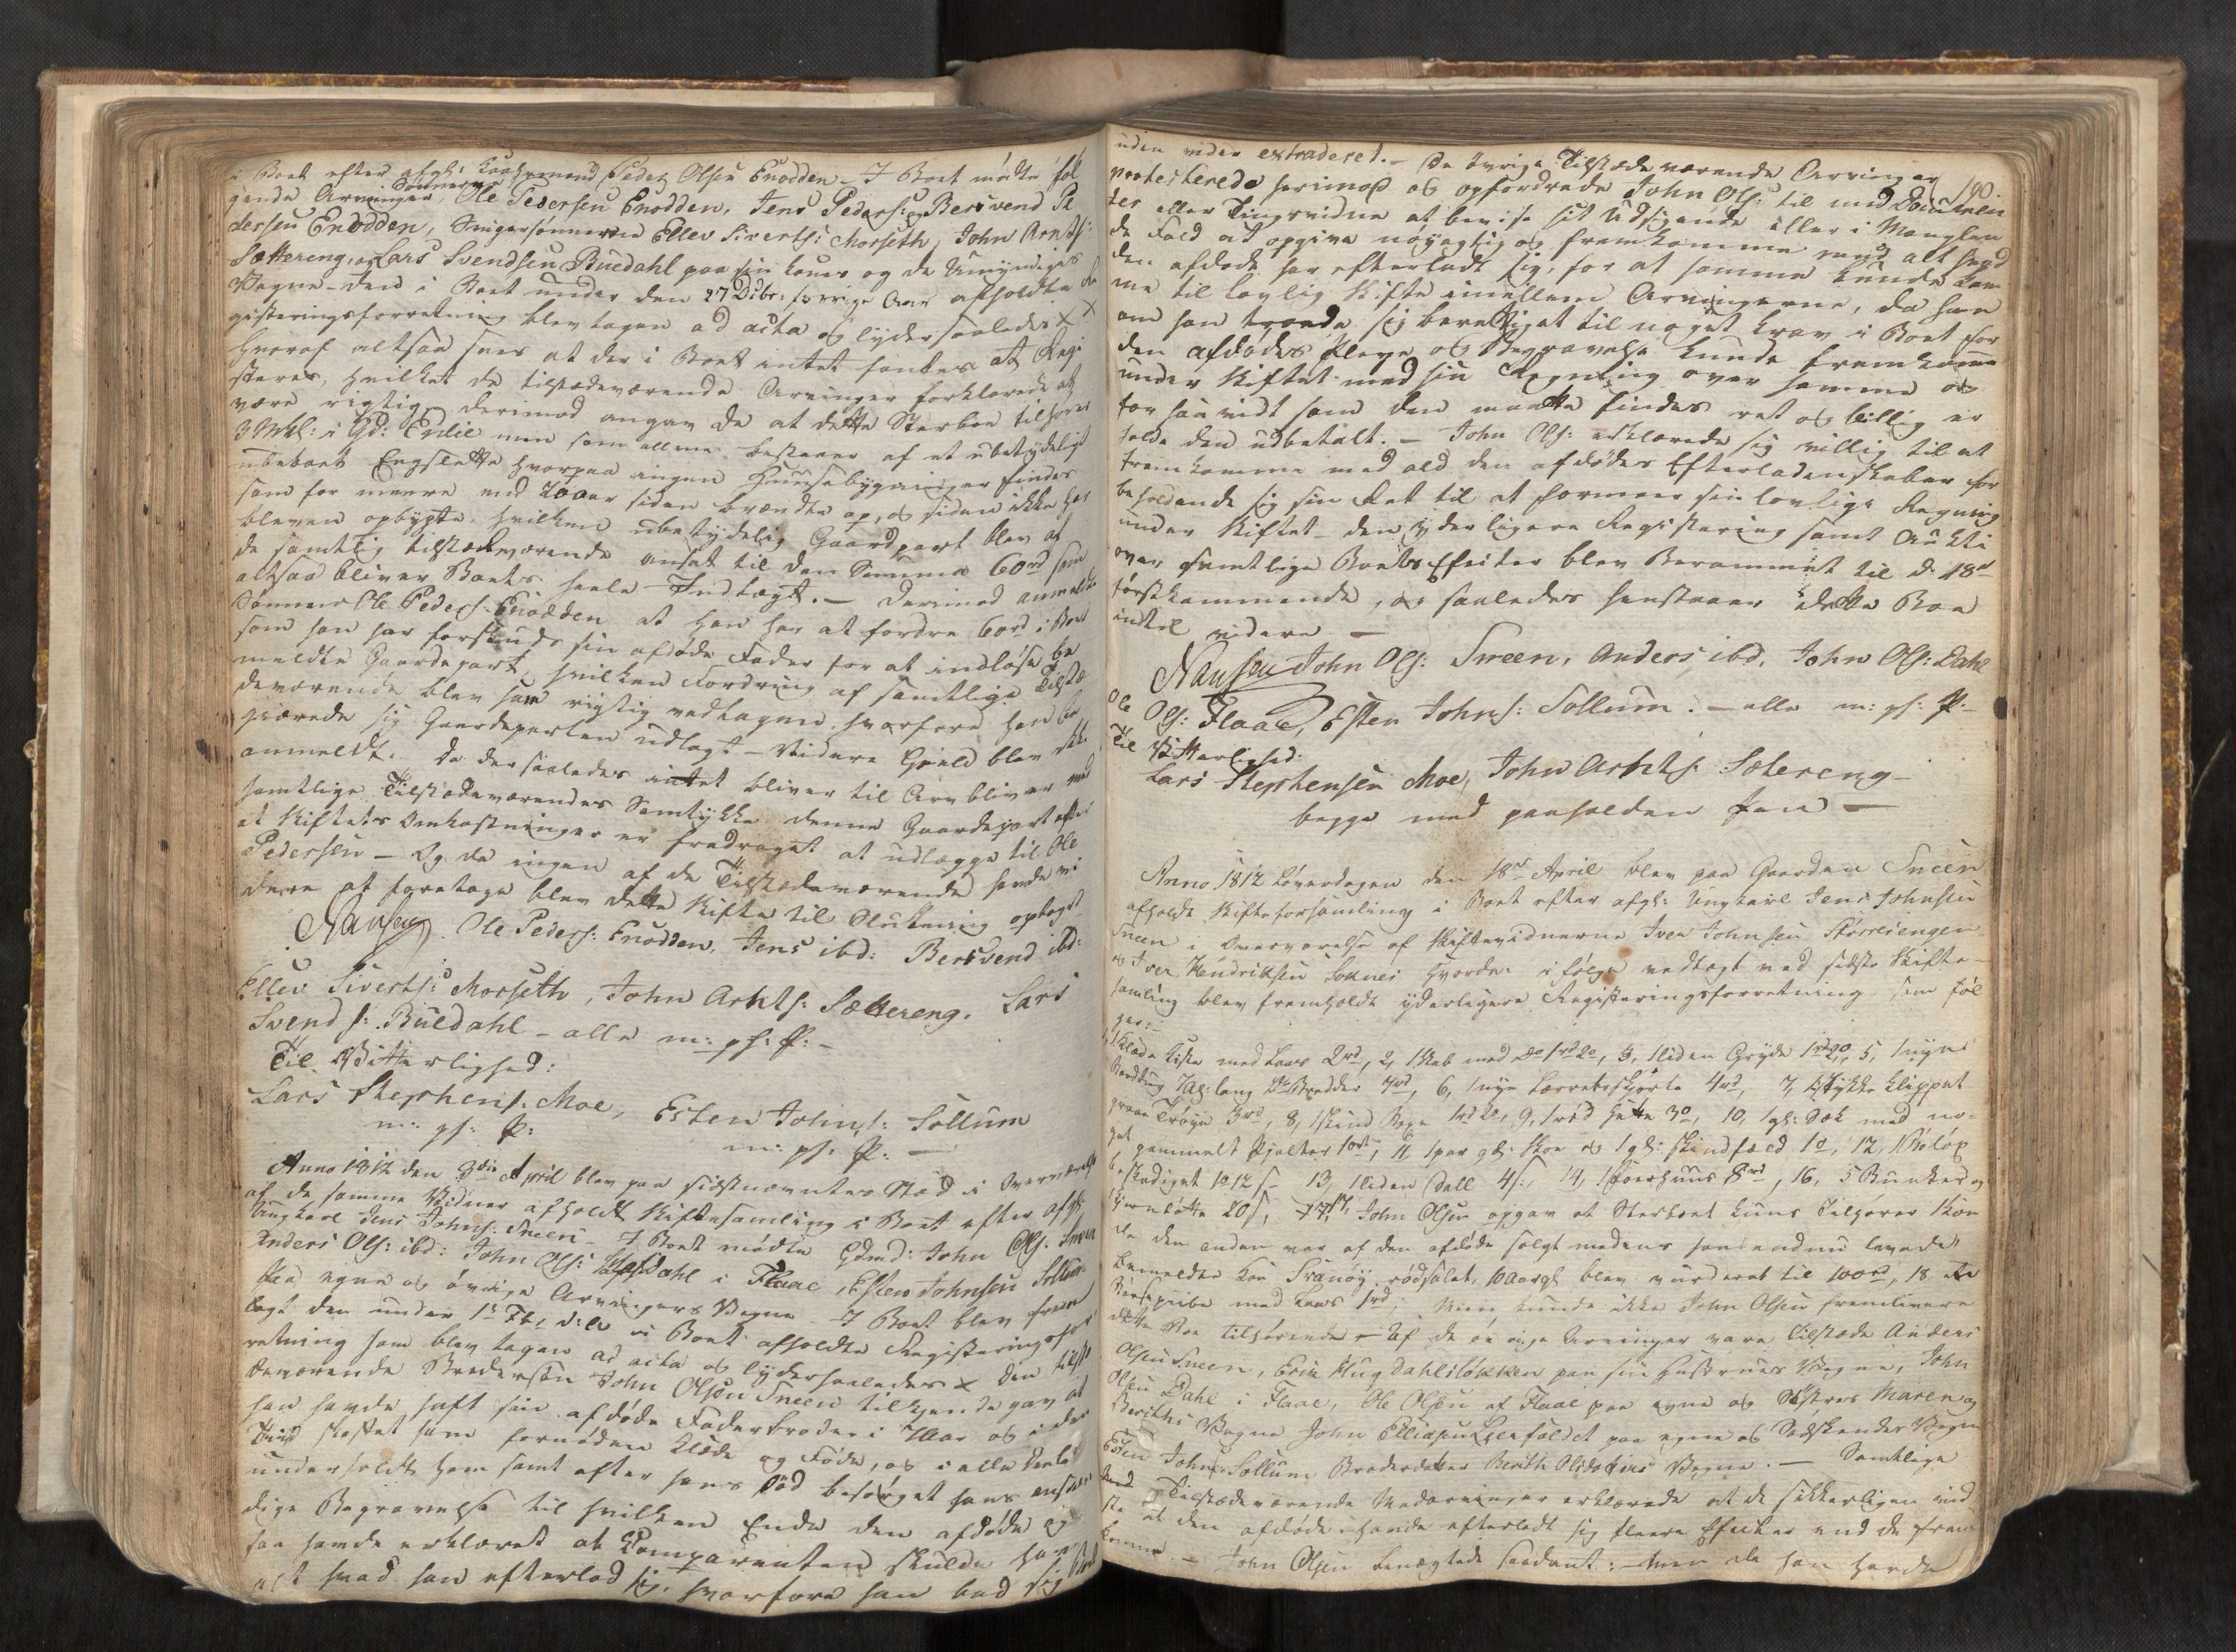 i Boet efter afgl: Huusmand Peder Olsen Enodden - I Boet mødte føl
gende Arvinger, Sønnerne Ole Pedersen Enodden, Jens Peders: og Bersvend Pe
dersen Enodden, Svigersønnerne Ellev Siverts: Morseth, John Arnts:
Sættereng, og Lars Svendsen Buedahl paa sin Kones og de Umyndiges
Vegne - den i Boet under den 27 Decbr: forrige Aar afholdte Re
gisteringsforretning blev tagen ad acta og lyder saaledes X X
hvoraf altsaa sees at der i Boet intet fantes at Regi
steres, hvilket de tilstædeværende Arvinger forklarede at
være rigtig, derimod angav de at dette Sterboe tilhører
3 Mkl: i Gd: Enlie men som allene bestaaer af et ubetydeligt
ubeboet Engslette hvorpaa ingen Huusebygninger findes
som for meere end 20 Aar siden brændte op, og siden ikke har
bleven opbygte, hvilken ubetydelig Gaardpart blev af
de samtlig tilstædeværende ansat til den Summa 60 rd som
altsaa bliver Boets heele Indtægt. - Derimod anmeldte
Sønnen Ole Peders: Enodden at han har at fordre 60 rd i Boet
som han har forskudt sin afdøde Fader for at indløse be
meldte Gaardepart, hvilken Fordring af samtlige Tilstæ
deværende blev som rigtig vedtagen, hvorfore han be
giærede sig Gaardeparten udlagt - Videre Gield blev ikke
anmeldt. Da der saaledes intet bliver til Arv bliver med
samtlige Tilstædeværendes Samtykke denne Gaardepart efter
at Skiftets Omkostninger er fradraget at udlægge til Ole
Pedersen - Og da ingen af de Tilstædeværende havde vi
dere at foretage blev dette Skifte til Slutning optaget
Nansen Ole Peders: Enodden, Jens ibd: Bersvend ibd:
Ellev Siverts: Morseth, John Arnts: Sættereng. Lars
Svends: Buedahl - alle m: ph: P: -
Til Vitterlighed:
Lars Stephens: Moe, Esten Johns: Sollum
m: ph: P: m: ph: P: -
Anno 1812 den 3die April blev paa sidstnævntes Stæd i Overværelse
af de samme Vidner afholdt Skiftesamling i Boet efter afgl:
Ungkarl Jens Johns: Sneen - I Boet mødte Gdmd: John Ols: Sneen
Anders Ols: ibd: John Ols: Dahl i Flaae, Esten Johnsen Sollum
paa egne og øvrige Arvingers Vegne - I Boet blev frem
lagt den under 1ste Fbr: d: A: i Boet afholdte Registeringsfor
retning som blev tagen ad acta og lyder saaledes X Den tilstæ
deværende Brodersøn John Olsen Sneen tilkjende gav at
han havde haft sin afdøde Faderbroder i Aar og i den
Tiid skaffet ham fornøden Klæde og Føde, og i alle Deele
underholdt ham samt efter hans Død besørget hans anstæn
dige Begravelse til hvilken Ende den afdøde og
saa havde erklæret at Comparenten skulde have
alt hvad han efterlod sig, hvorfore han bad sig Boet
190.
uden videre extraderet. - De øvrige Tilstædeværende Arvinger
protesterede herimod og opfordrede John Ols: til med Documen
ter eller Tingsvidne at bevise sit Udsigende eller i Manglen
de Fald at opgive nøyagtig og fremkomme med alt hvad
den afdøde har efterladt sig, for at samme kunde kom
me til lovlig Skifte imellem Arvingerne, da han
om han troede sig berettiget til noget Krav i Boet for
den afdødes Pleye og Begravelse kunde fremkomme
under Skiftet med sin Regning over samme og
for saavidt som den maatte findes ret og billig er
holde den udbetalt. - John Ols: erklærede sig villig til at
fremkomme med ald den afdødes Efterladenskaber for
beholdende sig sin Ret til at formeere sin lovlige Regning
under Skiftet - den yderligere Registering samt Aukti
over samtlige Boets Efecter blev Berammet til d: 18de
førstkommende, og saaledes henstaaer dette Boe
indtil videre -
Nansen John Ols: Sneen, Anders ibd, John Ols: Dahl
Ole Ols: Flaae, Esten Johns: Sollum. - alle m: ph: P: -
Til Vitterlighed:
Lars Stephensen Moe, John Arnts: Sætereng -
begge med paaholden Pen -
Anno 1812 Løverdagen den 18de April blev paa Gaarden Sneen
afholdt Skifteforsamling i Boet efter afgl: Ungkarl Jens Johnsen
Sneen i Overværelse af Skiftevidnerne Iver Johnsen Størreengen
og Iver Hendriksen Soknes hvorda i følge vedtægt ved sidste Skifte-
samling blev fremholdt yderligere Registeringsforretning som føl
ger:-
1, 1 Klæde Kiste med Laas 2 rd, 2, 1 Skab med do 1 rd 2 o, 3, 1 liden Gryde 1 rd 2 o, 5, 1 nyt
6, 1 nye Lærretsskjorte 4 rd, 7, 1 Stykke klippet
graae Trøye 3 rd, 8, 1 Skind 9, 1 rød Hætte 3 o, 10, 1 gl: Sæk med no-
get gammelt Pjalter 1 ort, 11, 1 par gl: Skoe og 1 gl: Skindfæld 1 o, 12, 1 Boløx
beskadiget 1 o 12 s - 13, 1 liden Dall 4 s:, 14, 1 Foerhuus 8 rd, 16, 5 Bunker og
20 s, 17, John Olsen opgav at Sterboet kuns Tilhører 1 Koe
da den anden var af den afdøde solgt medens han endnu levede,
bemeldte Koe Svanøy rødsidet, 10 Aargl: blev vurderet til 100 rd, 18
med Laas 1 rd, Meere kunde ikke John Olsen fremlevere
dette Boe tilhørende - Af de øvrige Arvinger vare Tilstæde Anders
Olsen Sneen, Erik Hugdahlsløkken paa sin Hustrues Vegne, John
Olsen Dahl i Flaae, Ole Olsen af Flaae paa egne og Søstres Maren og
Beriths Vegne John Ellevsen paa egne og Sødskendes Vegne
Esten Johns: Sollum Broderdatter Berith Olsdatters Vegne. - Samtlige
Tilstædeværende Medarvinger erklærede at de sikkerligen vid
ste at den afdøde havde efterladt sig fleere Efecter end de frem
komne - John Olsen benægtede saadant: - Men da han havde